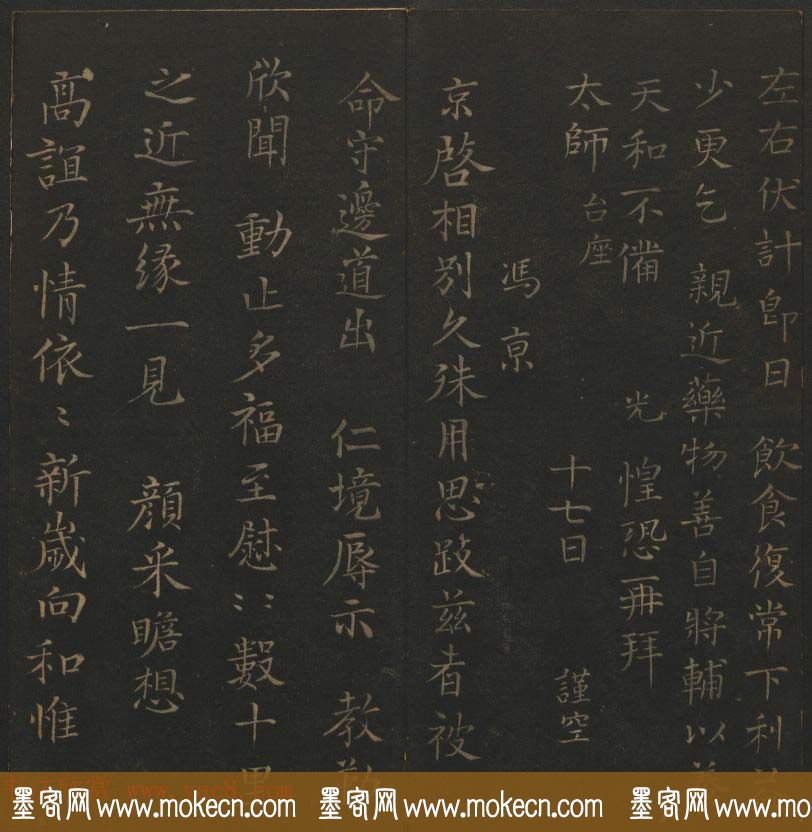 左右伏計即日 飲食復常下利
少更乞 親近藥物善自將輔以
天和不備 光惶恐再拜
太師台座 十七日 謹空
馮京
京啓相別久殊用思跂茲者被
命守邊道出 仁境辱示 教
欣聞 動止多福至慰〻數十
之近無緣一見 顏采瞻想
高誼乃情依〻新歲向和惟
墨客网 www.mokecn.com 墨客网 www.mokecn.com 墨客网 www.mokecn.com